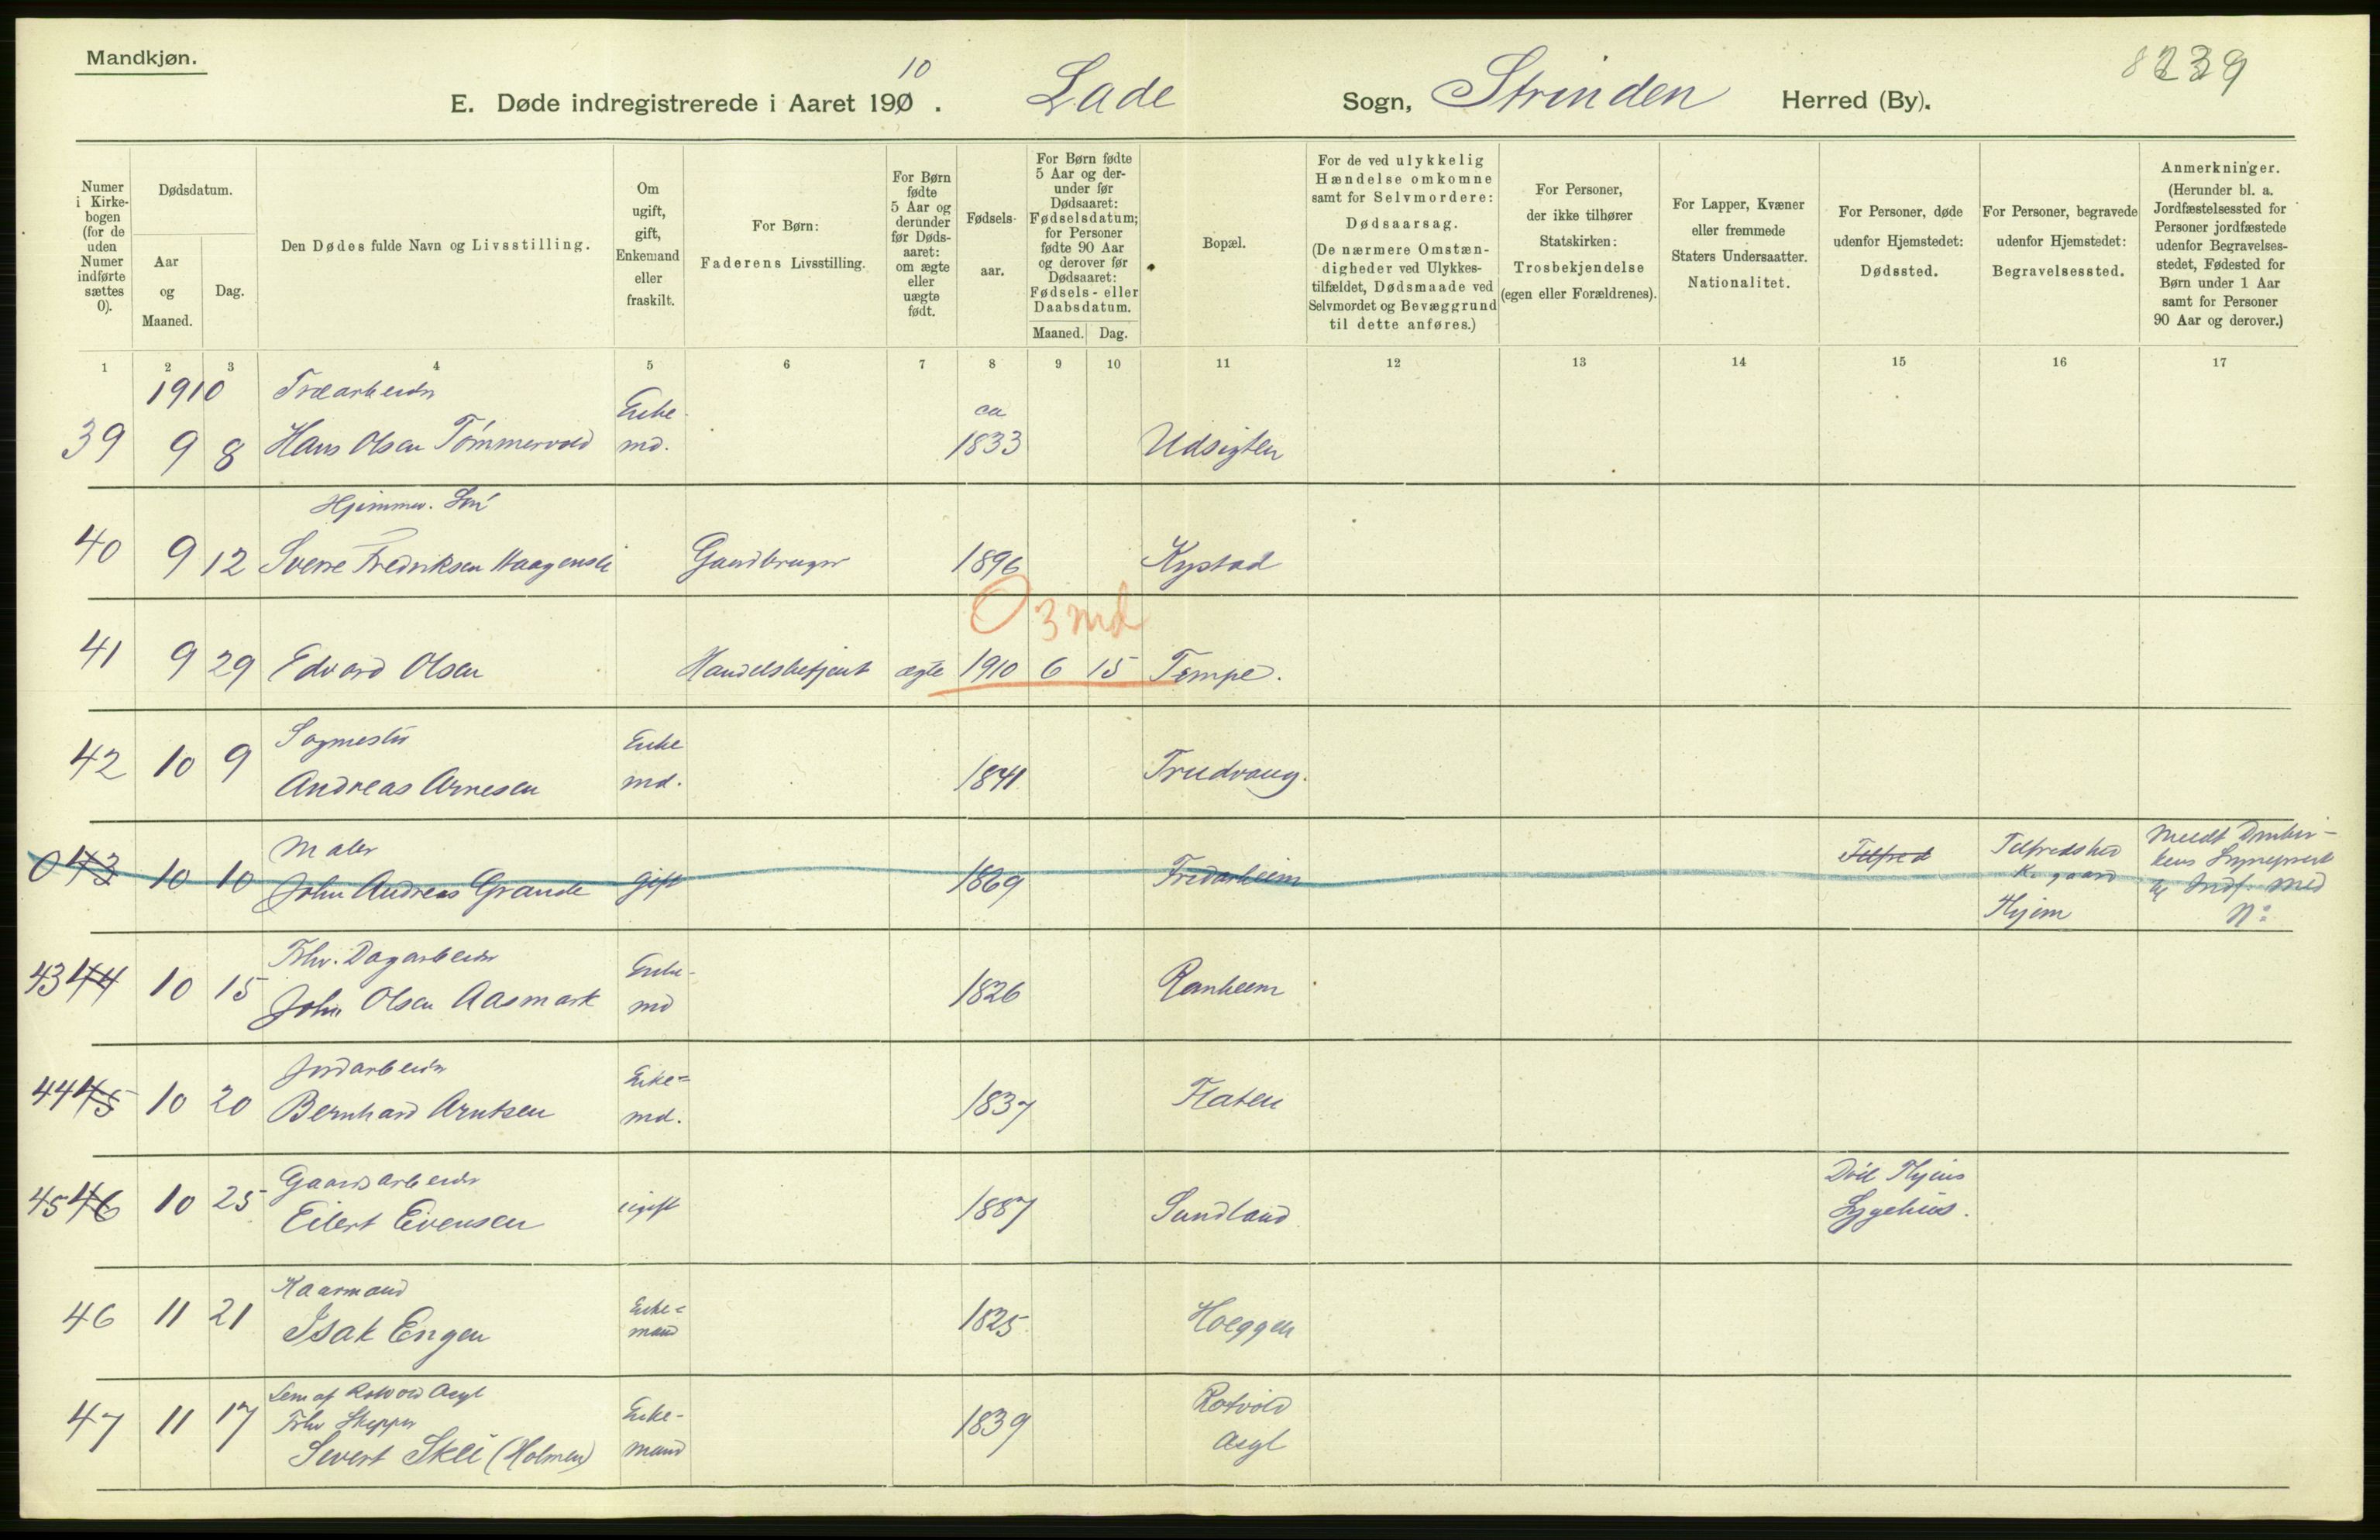 Mandkjøn.
8239
10
E. Døde indregistrerede i Aaret 190 . Lade Sogn, Strinden Herred (By).
Numer i Kirkebogen (for de uden Numer indførte sættes 0).
Dødsdatum.
Aar og Maaned.
Dag.
Den Dødes fulde Navn og Livsstilling.
Om ugift, gift, Enkemand eller fraskilt.
For Børn: Faderens Livsstilling.
For Børn fødte 5 Aar og derunder før Dødsaaret: om ægte eller uægte født.
Fødselsaar.
For Børn fødte 5 Aar og derunder før Dødsaaret: Fødselsdatum; for Personer fødte 90 Aar og derover før Dødsaaret: Fødsels- eller Daabsdatum.
Maaned. Dag.
Bopæl.
For de ved ulykkelig Hændelse omkomne samt for Selvmordere: Dødsaarsag. (De nærmere Omstændigheder ved Ulykkestilfældet, Dødsmaade ved Selvmordet og Bevæggrund til dette anføres.)
For Personer, der ikke tilhører Statskirken: Trosbekjendelse (egen eller Forældrenes).
For Lapper, Kvæner eller fremmede Staters Undersaatter. Nationalitet.
For Personer, døde udenfor Hjemstedet: Dødssted.
For Personer, begravede udenfor Hjemstedet: Begravelsessted.
Anmerkninger. (Herunder bl. a. Jordfæstelsessted for Personer jordfæstede udenfor Begravelsesstedet, Fødested for Børn under 1 Aar samt for Personer 90 Aar og derover.)
1 2 3 4 5 6 7 8 9 10 11 12 13 14 15 16 17
1910 Træarbeider Enke ca
39 9 8 Hans Olsen Tømmervold md. 1833 Udsigten
Hjemmev. Søn
40 9 12 Sverre Fredriksen Haagensli Gaardbruger 1896 Kystad
0 3 md
41 9 29 Edvard Olsen Handelsbetjent ægte 1910 6 15 Tempe.
Sagmester Enke
42 10 9 Andreas Arnesen md. 1841 Trudvang.
Maler
0 43 10 10 John Andreas Grande gift 1869 Fredarheim
K. gaard
Hjem
med
N:
Fhv. Dagarbeider Enke-
43 44 10 15 John Olsen Aasmark md 1826 Ranheim
Jordarbeider Enke=
44 45 10 20 Bernhard Arntsen md. 1837 Flaten
Gaardsarbeider
45 46 10 25 Eilert Eivensen ugift 1887 Sundland
Sygehus.
Kaarmand Enke=
46 11 21 Isak Engen mand 1825 Hoeggen
Lem af Rotvold Asyl
Fhv Skipper Enke- Rotvold
47 11 17 Sivert Sklei (Holmen) mand 1839 Asyl